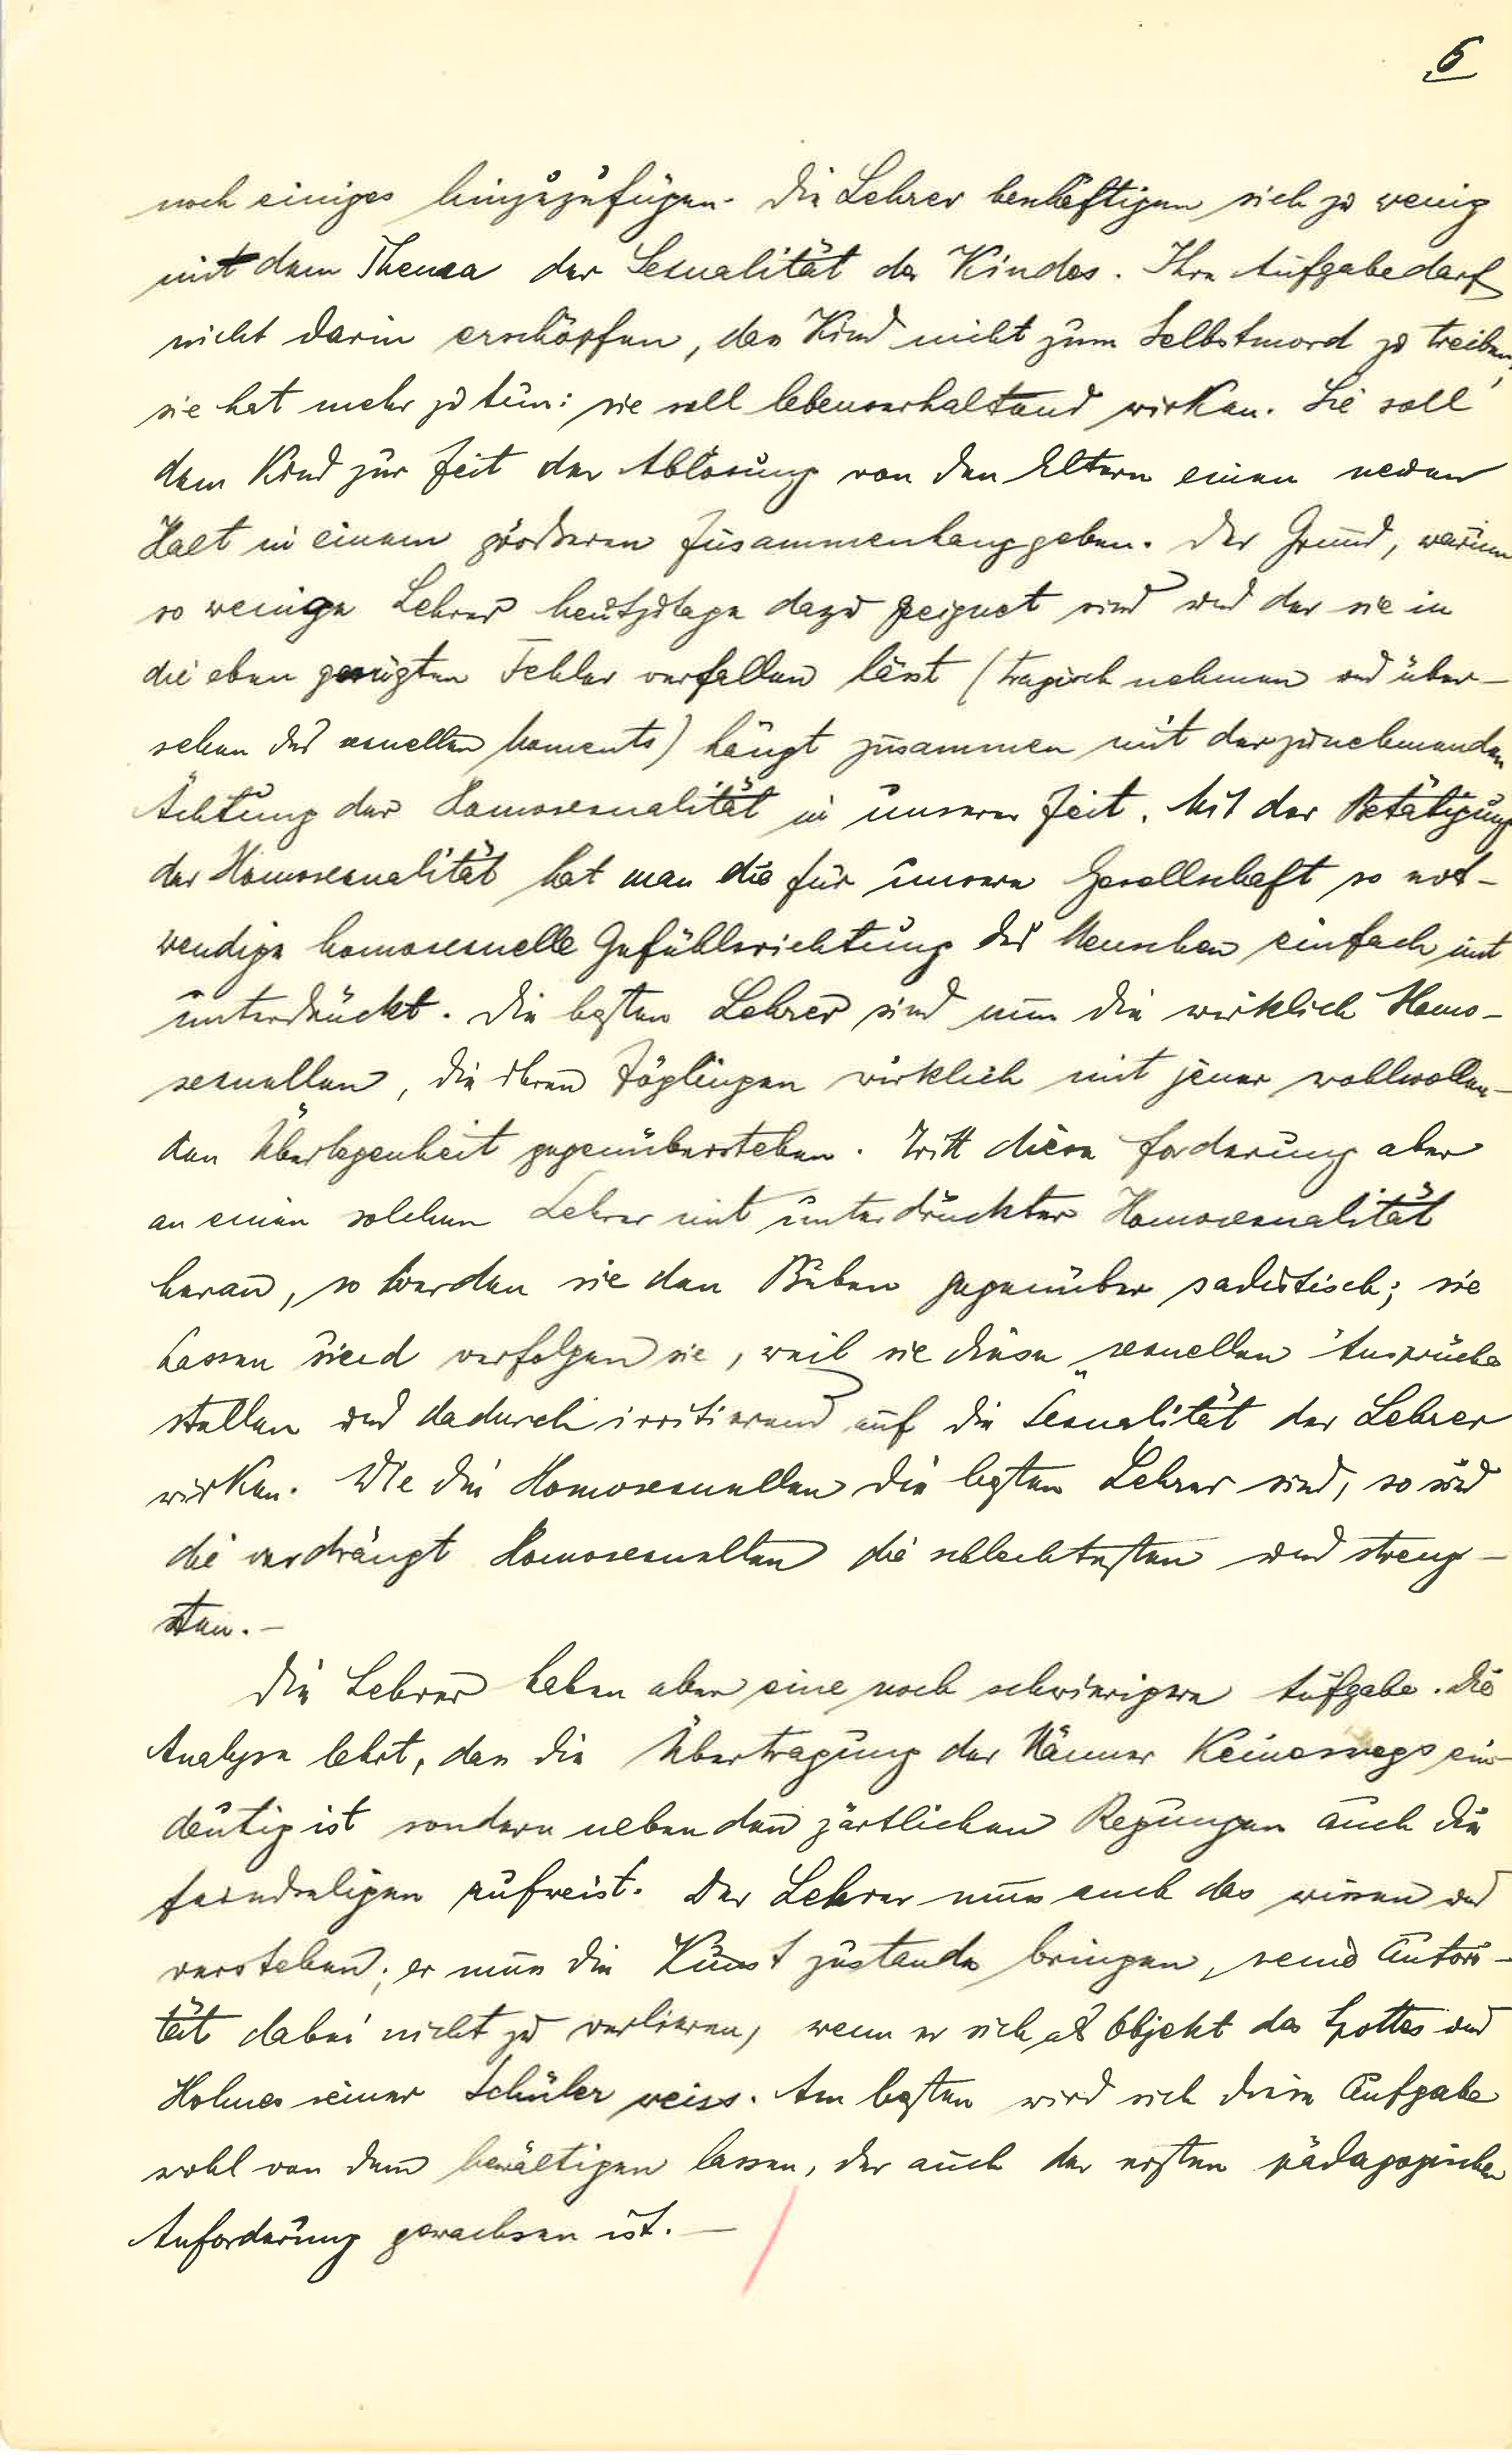 6
noch einiges hinzuzufügen. Die Lehrer beschäftigen sich zu wenig
mit dem Thema der Sexualität des Kindes. Ihre Aufgabe darf
nicht darin erschöpfen, das Kind nicht zum Selbstmord zu treiben,
sie hat mehr zu tun: sie soll lebenserhaltend wirken. Sie soll
dem Kind zur Zeit der Ablösung von den Eltern einen neuen
Halt in einem grösseren Zusammenhang geben. Der Grund, warum
so wenige Lehrer heutzutage dazu geeignet sind und der sie in
die eben gerügten Fehler verfallen lässt (tragisch nehmen und über-
sehen des sexuellen Moments) hängt zusammen mit der zunehmenden
Ächtung der Homosexualität in unserer Zeit. Mit der Betätigung
der Homosexualität hat man die für unsere Gesellschaft so not-
wendige homosexuelle Gefühlsrichtung des Menschen einfach mit
unterdrückt. Die besten Lehrer sind nun die wirklich Homo-
sexuellen, die ihren Zöglingen wirklich mit jener wohlwollen-
den Überlegenheit gegenüberstehen. Tritt diese Forderung aber
an einen solchen Lehrer mit unterdrückter Homosexualität
heran, so werden sie den Buben gegenüber sadistisch; sie
hassen und verfolgen sie, weil sie diese „sexuellen Ansprüche
stellen und dadurch irritierend auf die Sexualität der Lehrer
wirken. Wie die Homosexuellen die besten Lehrer sind, so sind
die verdrängt Homosexuellen die schlechtesten und streng-
sten.–
Die Lehrer haben aber eine noch schwierigere Aufgabe. Die
Analyse lehrt, dass die Übertragung der Männer keineswegs ein-
deutig ist sondern neben den zärtlichen Regungen auch die
feindseligen aufweist. Der Lehrer muss auch das wissen und
verstehen; er muss die Kunst zustande bringen, seine Autori-
tät dabei nicht zu verlieren, wenn er sich als Objekt des Spottes und
Hohnes seiner Schüler weiss. Am besten wird sich diese Aufgabe
wohl von dem bewältigen lassen, der auch der ersten pädagogischen
Anforderung gewachsen ist.–